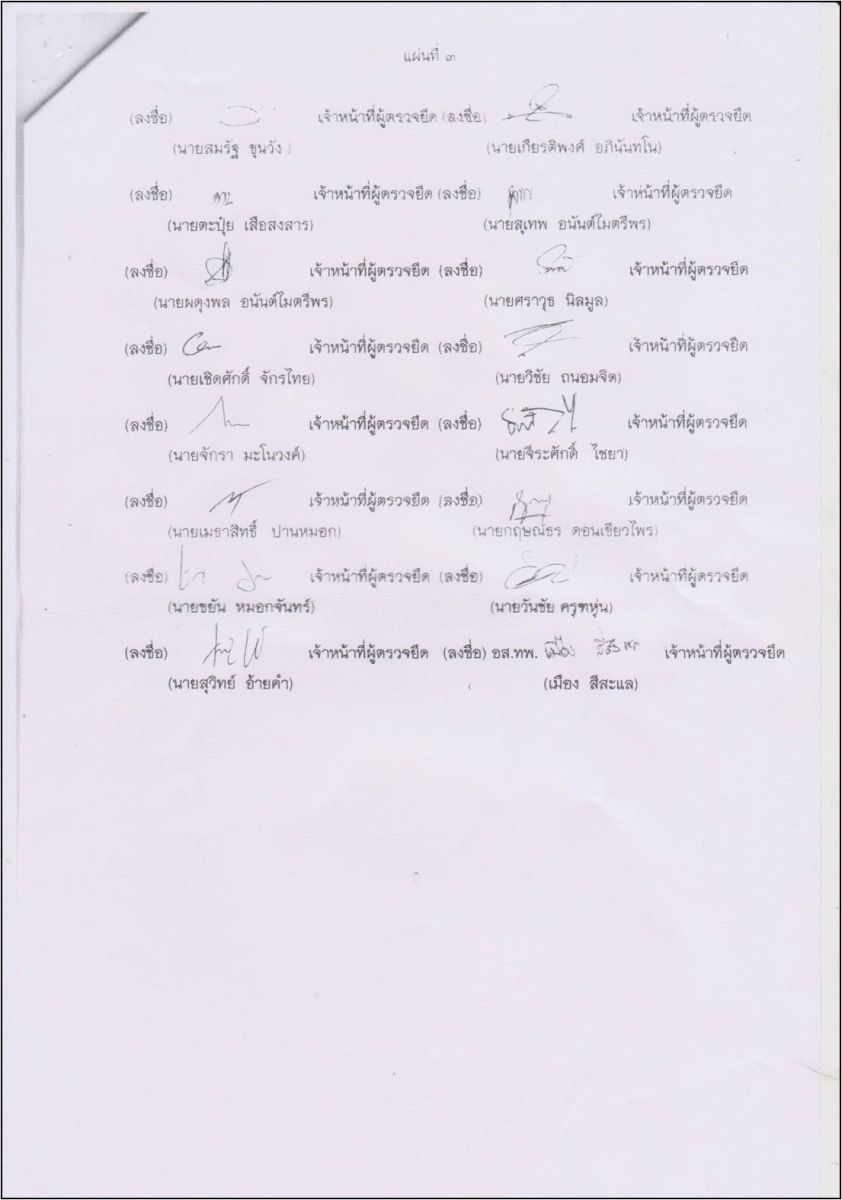 แผ่นที่ ๓
(ลงชื่อ) เจ้าหน้าที่ผู้ตรวจยึด (ลงชื่อ) เจ้าหน้าที่ผู้ตรวจยึด
(นายสมรัฐ ขุนวัง) (นายเกียรติพงศ์ อภินันทโน)
(ลงชื่อ) เจ้าหน้าที่ผู้ตรวจยึด (ลงชื่อ) เจ้าหน้าที่ผู้ตรวจยึด
(นายตะปุ๋ย เสือสงสาร) (นายสุเทพ อนันต์ไมตรีพร)
(ลงชื่อ) เจ้าหน้าที่ผู้ตรวจยึด (ลงชื่อ) เจ้าหน้าที่ผู้ตรวจยึด
(นายผดุงพล อนันต์ไมตรีพร) (นายศราวุธ นิลมูล)
(ลงชื่อ) เจ้าหน้าที่ผู้ตรวจยึด (ลงชื่อ) เจ้าหน้าที่ผู้ตรวจยึด
(นายเชิดศักดิ์ จักรไทย) (นายวิชัย ถนอมจิต)
(ลงชื่อ) เจ้าหน้าที่ผู้ตรวจยึด (ลงชื่อ) เจ้าหน้าที่ผู้ตรวจยึด
(นายจักรา มะโนวงค์) (นายจีระศักดิ์ ไชยา)
(ลงชื่อ) เจ้าหน้าที่ผู้ตรวจยึด (ลงชื่อ) เจ้าหน้าที่ผู้ตรวจยึด
(นายเมธาสิทธิ์ ปานหมอก) (นายกฤษณ์ธร ดอนเขียวไพร)
(ลงชื่อ) เจ้าหน้าที่ผู้ตรวจยึด (ลงชื่อ) เจ้าหน้าที่ผู้ตรวจยึด
(นายขยัน หมอกจันทร์) (นายวันชัย ครุฑหุ่น)
(ลงชื่อ) เจ้าหน้าที่ผู้ตรวจยึด (ลงชื่อ) อส.ทพ. เมือง เจ้าหน้าที่ผู้ตรวจยึด
(นายสุวิทย์ อ้ายคำ) (เมือง สีสะแล)